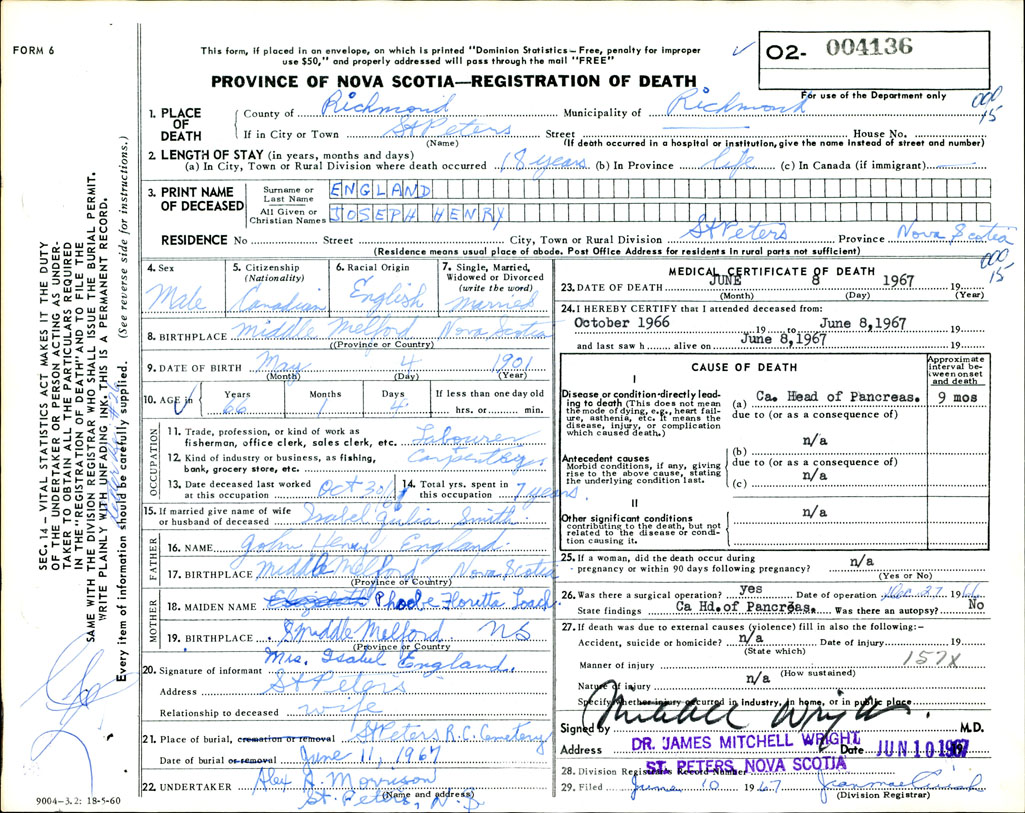 FORM 6
This form, if placed in an envelope, on which is printed "Dominion Statistics—Free, penalty for improper
use $50," and properly addressed will pass through the mail "FREE"
✓
O2- 004136
PROVINCE OF NOVA SCOTIA—REGISTRATION OF DEATH
For use of the Department only
000
15
1. PLACE OF DEATH
County of Richmond Municipality of Richmond
If in City or Town St Peters Street House No.
(Name) (If death occurred in a hospital or institution, give the name instead of street and number)
2. LENGTH OF STAY (in years, months and days)
(a) In City, Town or Rural Division where death occurred 18 years (b) In Province life (c) In Canada (if immigrant)
3. PRINT NAME OF DECEASED
Surname or Last Name ENGLAND
All Given or Christian Names JOSEPH HENRY
RESIDENCE No Street City, Town or Rural Division St Peters Province Nova Scotia
(Residence means usual place of abode. Post Office Address for residents in rural parts not sufficient)
000
15
4. Sex
Male
5. Citizenship
(Nationality)
Canadian
6. Racial Origin
English
7. Single, Married,
Widowed or Divorced
(write the word)
Married
8. BIRTHPLACE Middle Melford Nova Scotia
((Province or Country)
9. DATE OF BIRTH May 4 1901
(Month) (Day) (Year)
10. AGE in ✓
Years Months Days If less than one day old
66 1 4 hrs. or min.
OCCUPATION
11. Trade, profession, or kind of work as
fisherman, office clerk, sales clerk, etc. Labourer
12. Kind of industry or business, as fishing,
bank, grocery store, etc.
13. Date deceased last worked
at this occupation Oct 30/
14. Total yrs. spent in
this occupation 7 years.
15. If married give name of wife
or husband of deceased Isabel Julia Smith
FATHER
16. NAME John Henry England
17. BIRTHPLACE Middle Melford Nova Scotia
(Province or Country)
MOTHER
18. MAIDEN NAME Elizabeth Phoebe Floretta
19. BIRTHPLACE Middle Melford NS
(Province or Country)
20. Signature of informant Mrs. Isabel England
Address St Peters
Relationship to deceased wife
21. Place of burial, cremation or removal St Peters R.C. Cemetery
Date of burial or removal June 11, 1967
22. UNDERTAKER Alex A. Morrison
St. Peters, N.S
(Name and address)
9004—3.2: 18-5-60
MEDICAL CERTIFICATE OF DEATH
23. DATE OF DEATH JUNE 8 1967 19
(Month) (Day) (Year)
24. I HEREBY CERTIFY that I attended deceased from:
October 1966 19 to June 8,1967 19
and last saw h alive on June 8,1967 19
CAUSE OF DEATH
Approximate
interval be-
tween onset
and death
I
Disease or condition directly lead-
ing to death (This does not mean
the mode of dying, e.g., heart fail-
ure, asthenia, etc. It means the
disease, injury, or complication
which caused death.)
(a) Ca. Head of Pancreas. 9 mos
due to (or as a consequence of)
n/a
Antecedent causes
Morbid conditions, if any, giving
rise to the above cause, stating
the underlying condition last.
(b)
due to (or as a consequence of)
n/a
(c)
II
Other significant conditions
contributing to the death, but not
related to the disease or condi-
tion causing it.
n/a
25. If a woman, did the death occur during
pregnancy or within 90 days following pregnancy? n/a
(Yes or No)
26. Was there a surgical operation? yes Date of operation Dec 27 1966
State findings Ca Hd.of Pancreas. Was there an autopsy? No
27. If death was due to external causes (violence) fill in also the following:—
Accident, suicide or homicide? n/a Date of injury 19
(State which)
Manner of injury 157X
(How sustained)
Nature of injury n/a
Specify whether injury occurred in industry, in home, or in public place
Signed by Mitchell Wright M.D.
Address DR. JAMES MITCHELL WRIGHT Date JUN 10 1967
ST. PETERS, NOVA SCOTIA
28. Division Registrar's Record Number
29. Filed June 10 1967
(Division Registrar)
SEC. 14 — VITAL STATISTICS ACT MAKES IT THE DUTY
OF THE UNDERTAKER OR PERSON ACTING AS UNDER-
TAKER TO OBTAIN ALL THE PARTICULARS REQUIRED
IN THE "REGISTRATION OF DEATH" AND TO FILE THE
SAME WITH THE DIVISION REGISTRAR WHO SHALL ISSUE THE BURIAL PERMIT.
WRITE PLAINLY WITH UNFADING INK. THIS IS A PERMANENT RECORD.
Every item of information should be carefully supplied. (See reverse side for instructions.)